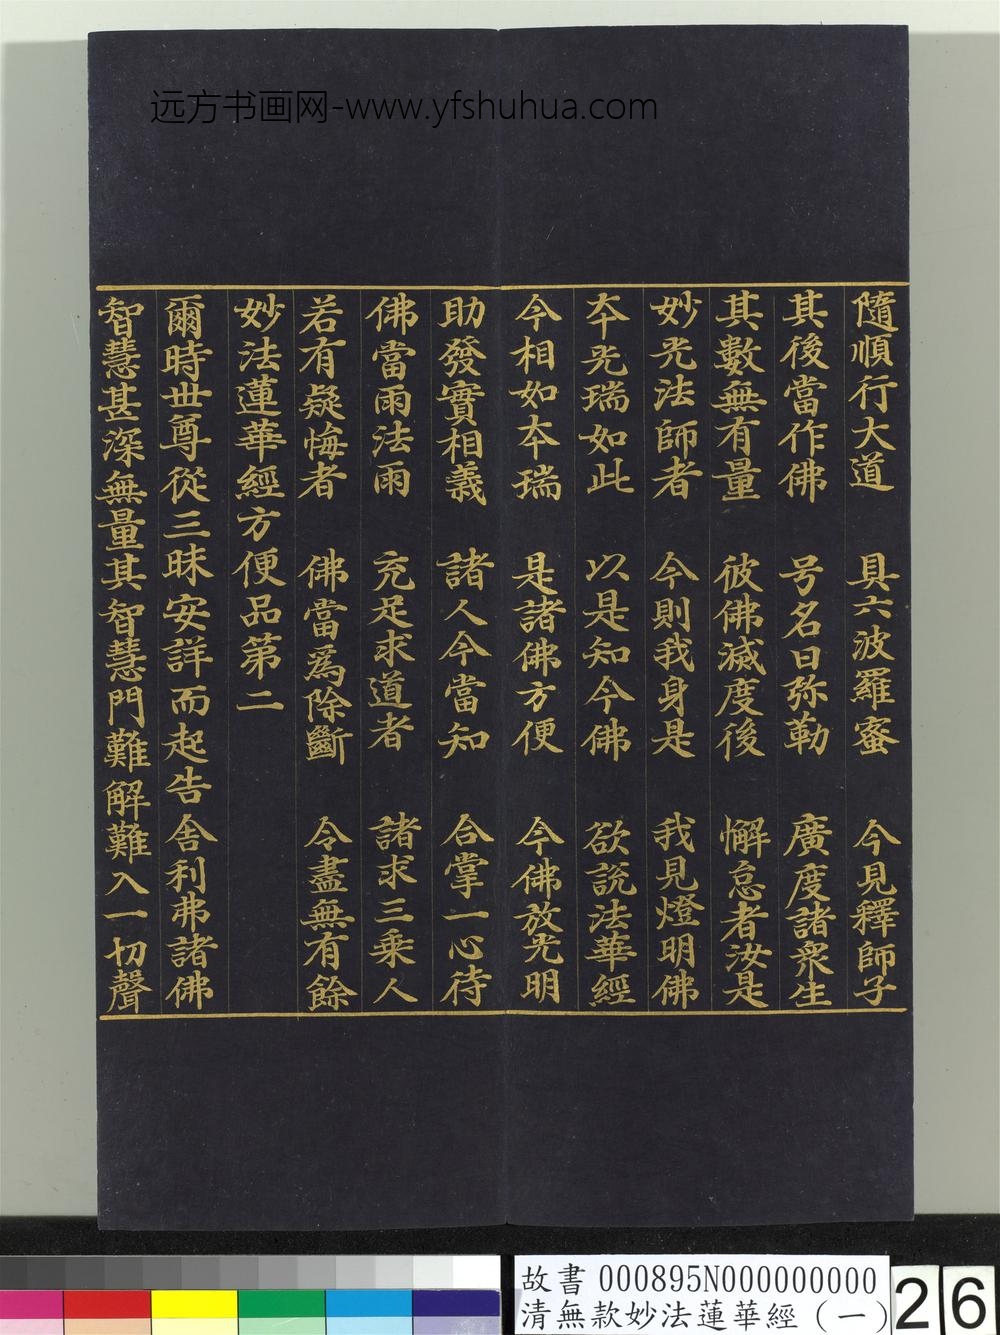 远方书画网-www.yfshuhua.com
隨順行大道 具六波羅蜜 今見釋師子
其後當作佛 号名曰弥勒 廣度諸眾生
其數無有量 彼佛滅度後 懈怠者汝是
妙光法師者 今則我身是 我見燈明佛
本光瑞如此 以是知今佛 欲說法華經
今相如本瑞 是諸佛方便 今佛放光明
助發實相義 諸人今當知 合掌一心待
佛當雨法雨 充足求道者 諸求三乘人
若有疑悔者 佛當為除斷 令盡無有餘
妙法蓮華經方便品第二
爾時世尊從三昧安詳而起告舍利弗諸佛
智慧甚深無量其智慧門難解難入一切聲
故書 000895N000000000
清無款妙法蓮華經（一）
26